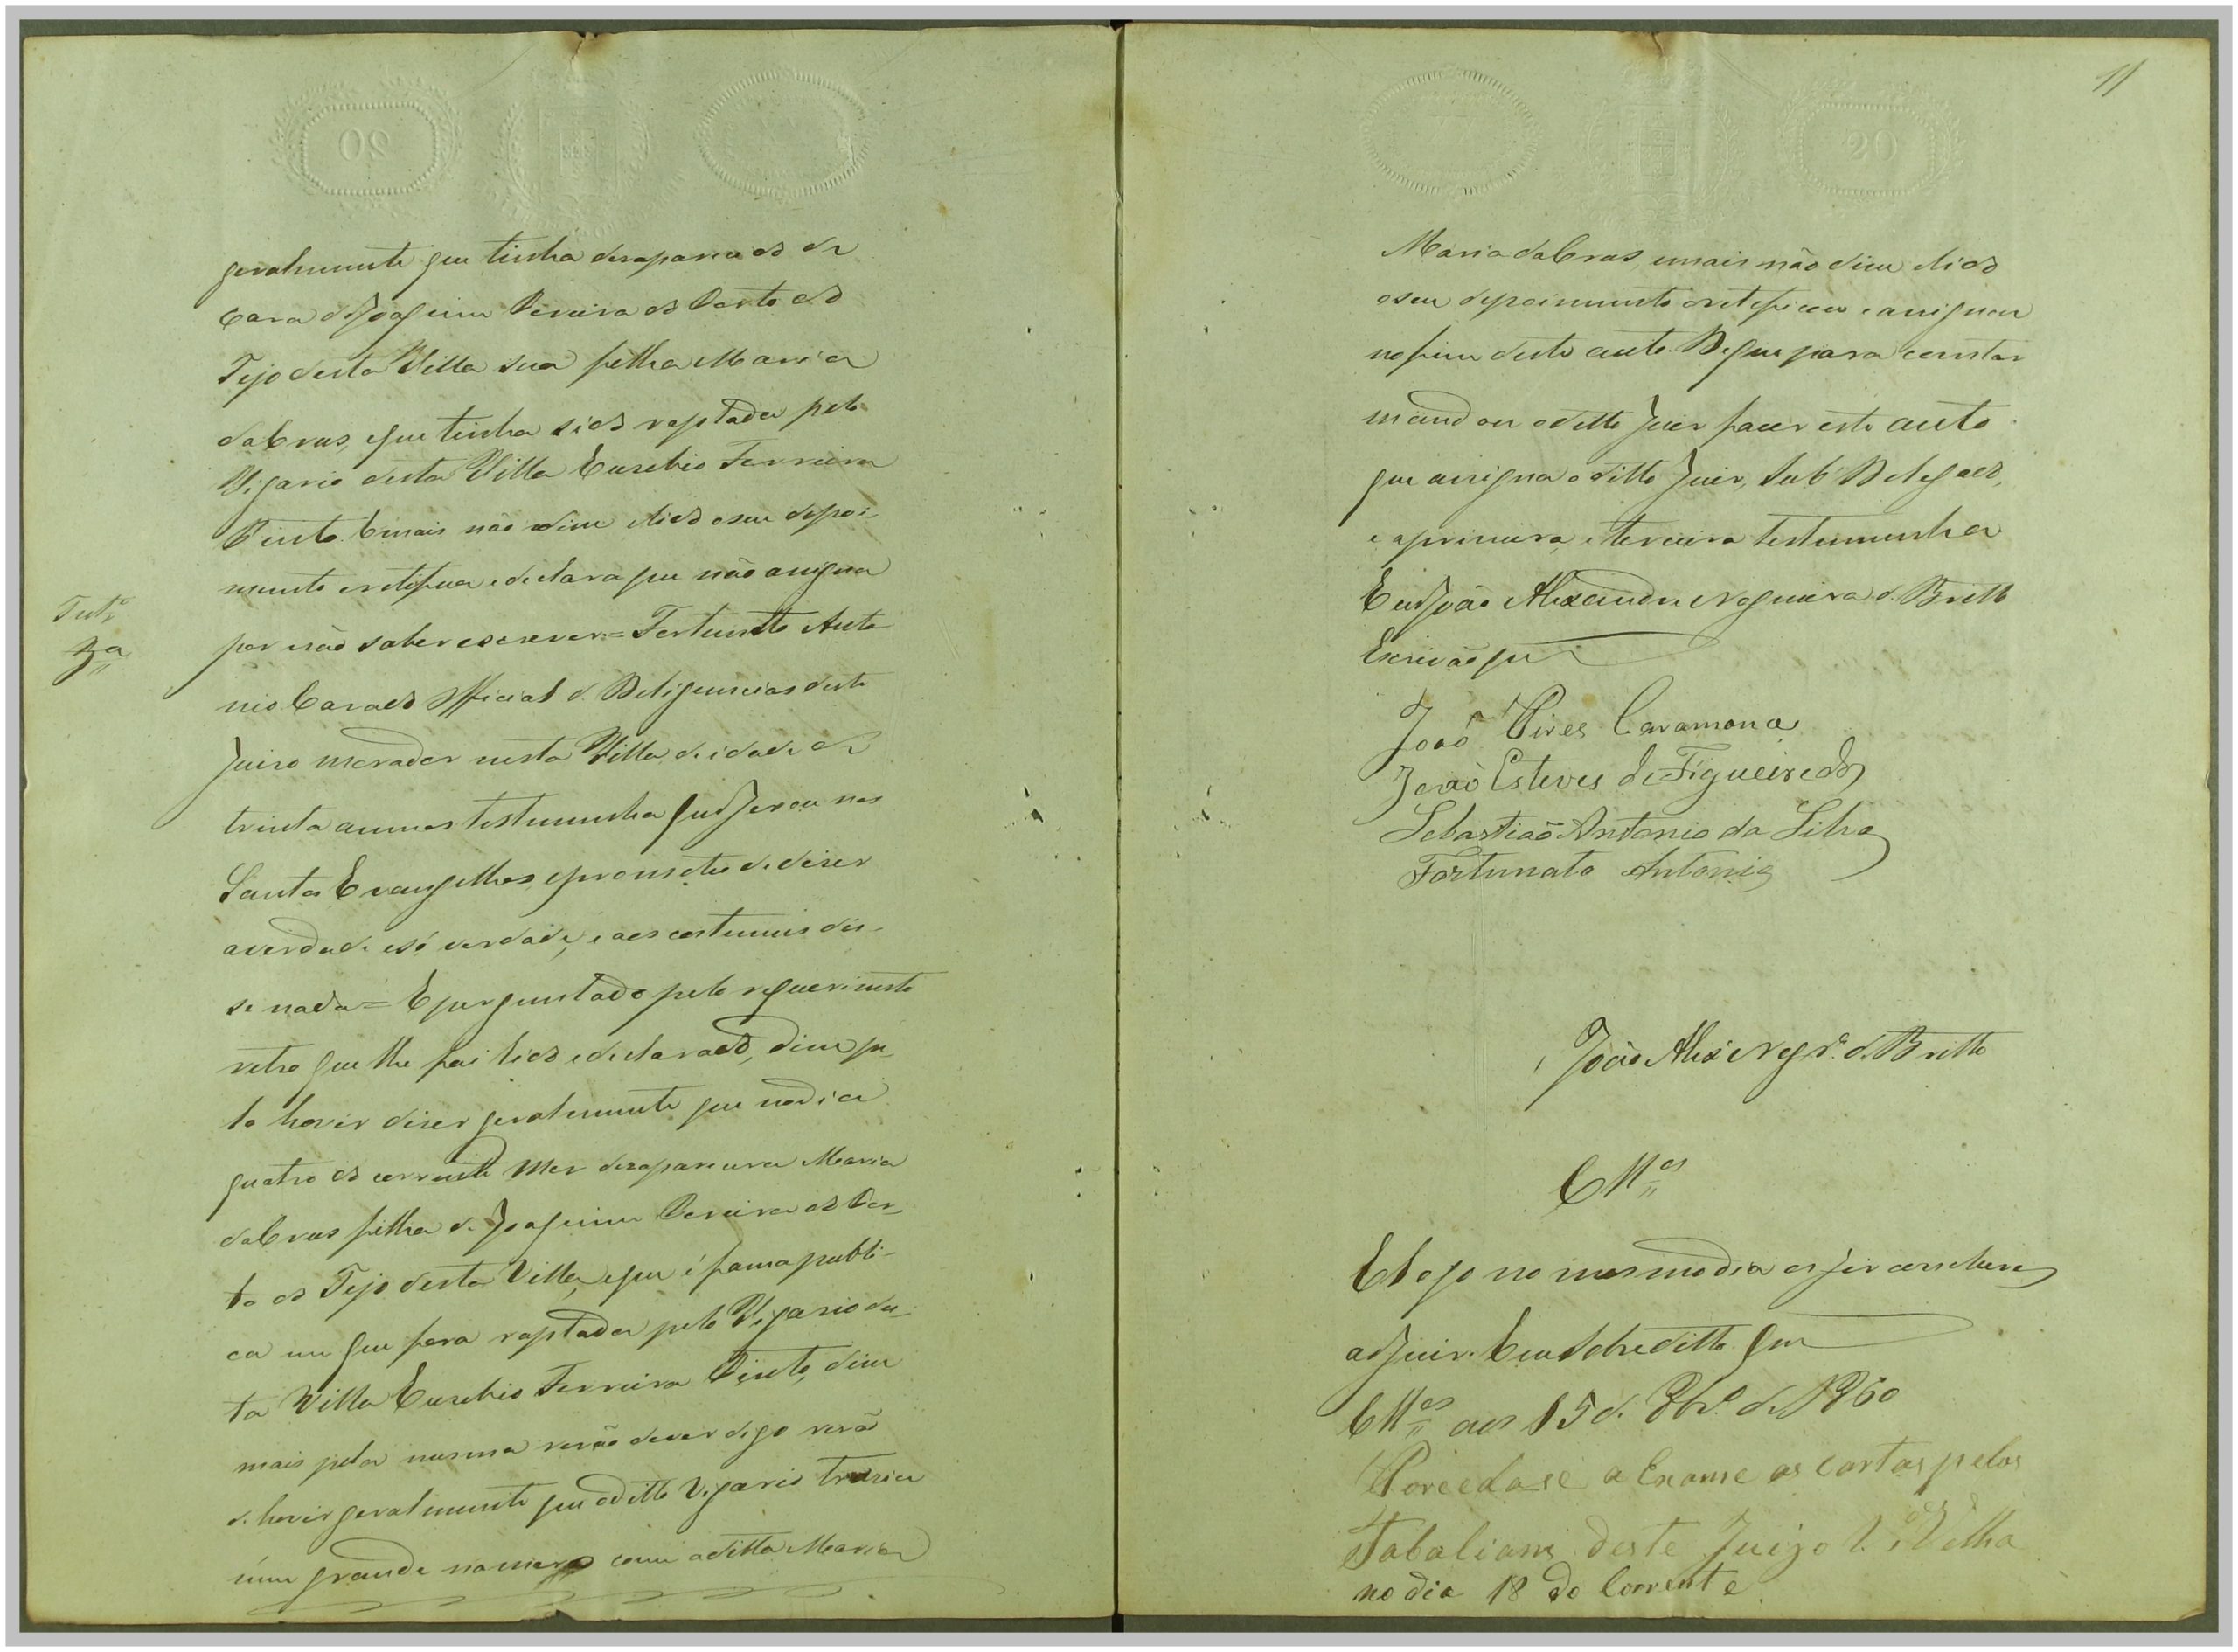 geralmente que tinha desaparecido de
casa de Joaquim Pereira do Porto do
Tejo desta Villa sua filha Maria
da Crus, e que tinha sido raptada pelo
Vigario desta Villa Eusebio Ferreira
Pinto. E mais não disse lido o seu depoi-
mento o retefica e declara que não asigna
por não saber escrever = Fortunato Anto
Testª
3ª
nio Carado Official de Deligencias deste
Juiso morador nesta Villa de idade de
trinta annos testemunha que jurou nos
Santos Evangelhos, e prometeo de diser
a verdade e só verdade, e aos costumes dis-
se nada = E perguntado pelo requerimento
retro que lhe foi lido e declarado, disse pe-
lo hovir diser geralmente que no dia
quatro do corrente Mes desaparecera Maria
da Crus filha de Joaquim Pereira do Por-
to do Tejo desta Villa, e que é fama publi-
ca em que fora raptada pelo Vigario des-
ta Villa Eusebio Ferreira Pinto, disse
mais pela mesma rasão de ver digo rasão
de hovir geralmente que o ditto Vigario trasia
um grande namoro com a ditta Maria
11
20
Maria da Crus, e mais não disse lido
o seu depoimento o reteficou e assignou
no fim deste auto. De que para constar
mandou o ditto Juis faser este auto
que assigna o ditto Juis, Sub Delegado,
e a primeira, e terceira testemunha
E eu João Alexandre Nogueira de Britto
Escrivão que
João Pires Caramona
João Esteves de Figueiredo
Sebastião Antonio da Silva
Fortunato Antonio
João Alexe Nogrª de Britto
Cllos
E logo no mesmo dia os fis conclusos
ao Juis. E eu Sobreditto que
Cllos aos 15 de de 1860
Porceda-se a Exame as cartas pelos
Tabaliams deste Juizo V. Velha
no dia 18 do Corrente